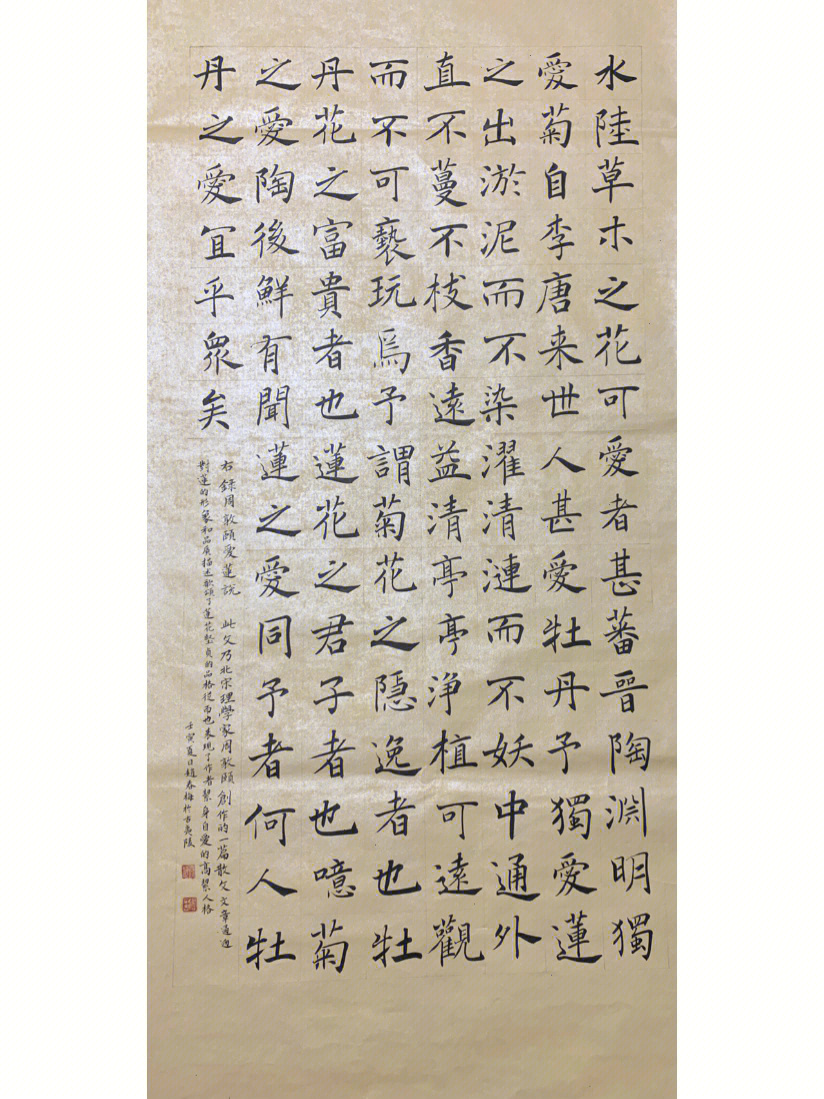 水陸草木之花可愛者甚蕃晉陶淵明獨
愛菊自李唐来世人甚愛牡丹予獨愛蓮
之出淤泥而不染濯清漣而不妖中通外
直不蔓不枝香遠益清亭亭浄植可遠觀
而不可褻玩焉予謂菊花之隠逸者也牡
丹花之富貴者也蓮花之君子者也噫菊
之愛陶後鮮有聞蓮之愛同予者何人牡
丹之愛宜乎眾矣
右錄周敦頤愛蓮説 此文乃北宋理學家周敦頤創作的一篇散文文章通過
對蓮的形象和品质描述歌頌了蓮花堅貞的品格從而也表現了作者絜身自愛的高絜人格
壬寅夏日趙春梅於古夷陵